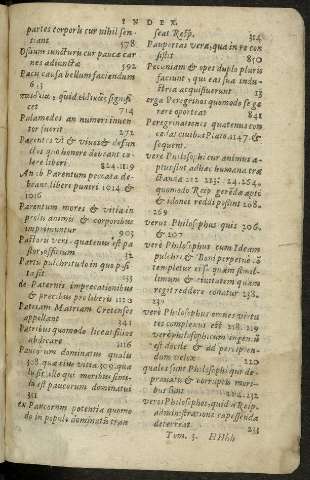 INDEX.
partes corporis cur nihil sen-
tiant 578
Ossium iuncturis cur paucæ car
nes adiunctæ 592
Pacis causa bellum faciendum
quid signifi
cet 714
Palamedes an numeri inuen-
tor fuerit 272
Parentes vi & viuos & defun
ctos quo honore deceant co-
lere liberi 824.1119
An ob Parentum peccata de-
beant liberi puniri 1014 &
1016
Parentum mores & vitia in
prolis animis & corporibus
imprimuntur 903
Pastoris veri quatenus est pa
stor officium 32
Partis pulchritudo in quo posi
ta sit 333
de Paternis imprecationibus
& precibus pro liberis 1120
Patriam Matriam Cretenses
appellant 341
Patribus quomodo liceat filios
abdicare 1116
Paucorum dominatus qualis
308 quæ eius vitia 309. qua
lis sit illo qui moribus simi-
lis est paucorum dominatus
311
ex Paucorum potentia quomo
do in populi dominatū tran
seat Resp. 314
Paupertas vera, qua in re con
sistit 850
Pecuniam & opes duplo pluris
faciunt, qui eas sua indu-
stria acquisiuerunt 13
erga Peregrinos quomodo se ge
rere oporteat 841
Peregrinationes quatenus con
cedat ciuibus Plato. 1147. &
sequent.
vere Philosophi cur animus a-
ptus sit adhiae humana tra
ctanda 212 213. 24.264.
quomodo Resp. gerēda apti
& idonei reddi possint 208.
269
verus Philosophus quis 206.
& 207
verè Philosophus cum Ideam
pulchri & Boni perpetuò cō
templetur se quàm simil-
limum & ciuitatem quam
regit reddere conatur 238.
230
verè Philosophus omnes virtu
tes complexus est 218.219
verè philosophicum ingeniū
est docile & ad percipien-
dum velox 220
quales sunt Philosophi qui de-
prauatis & corruptis mori-
bus sunt 224.232
veros Philosophos, quid à Resp.
administratione capessenda
deterreat 233
Tom. 3. HHhh